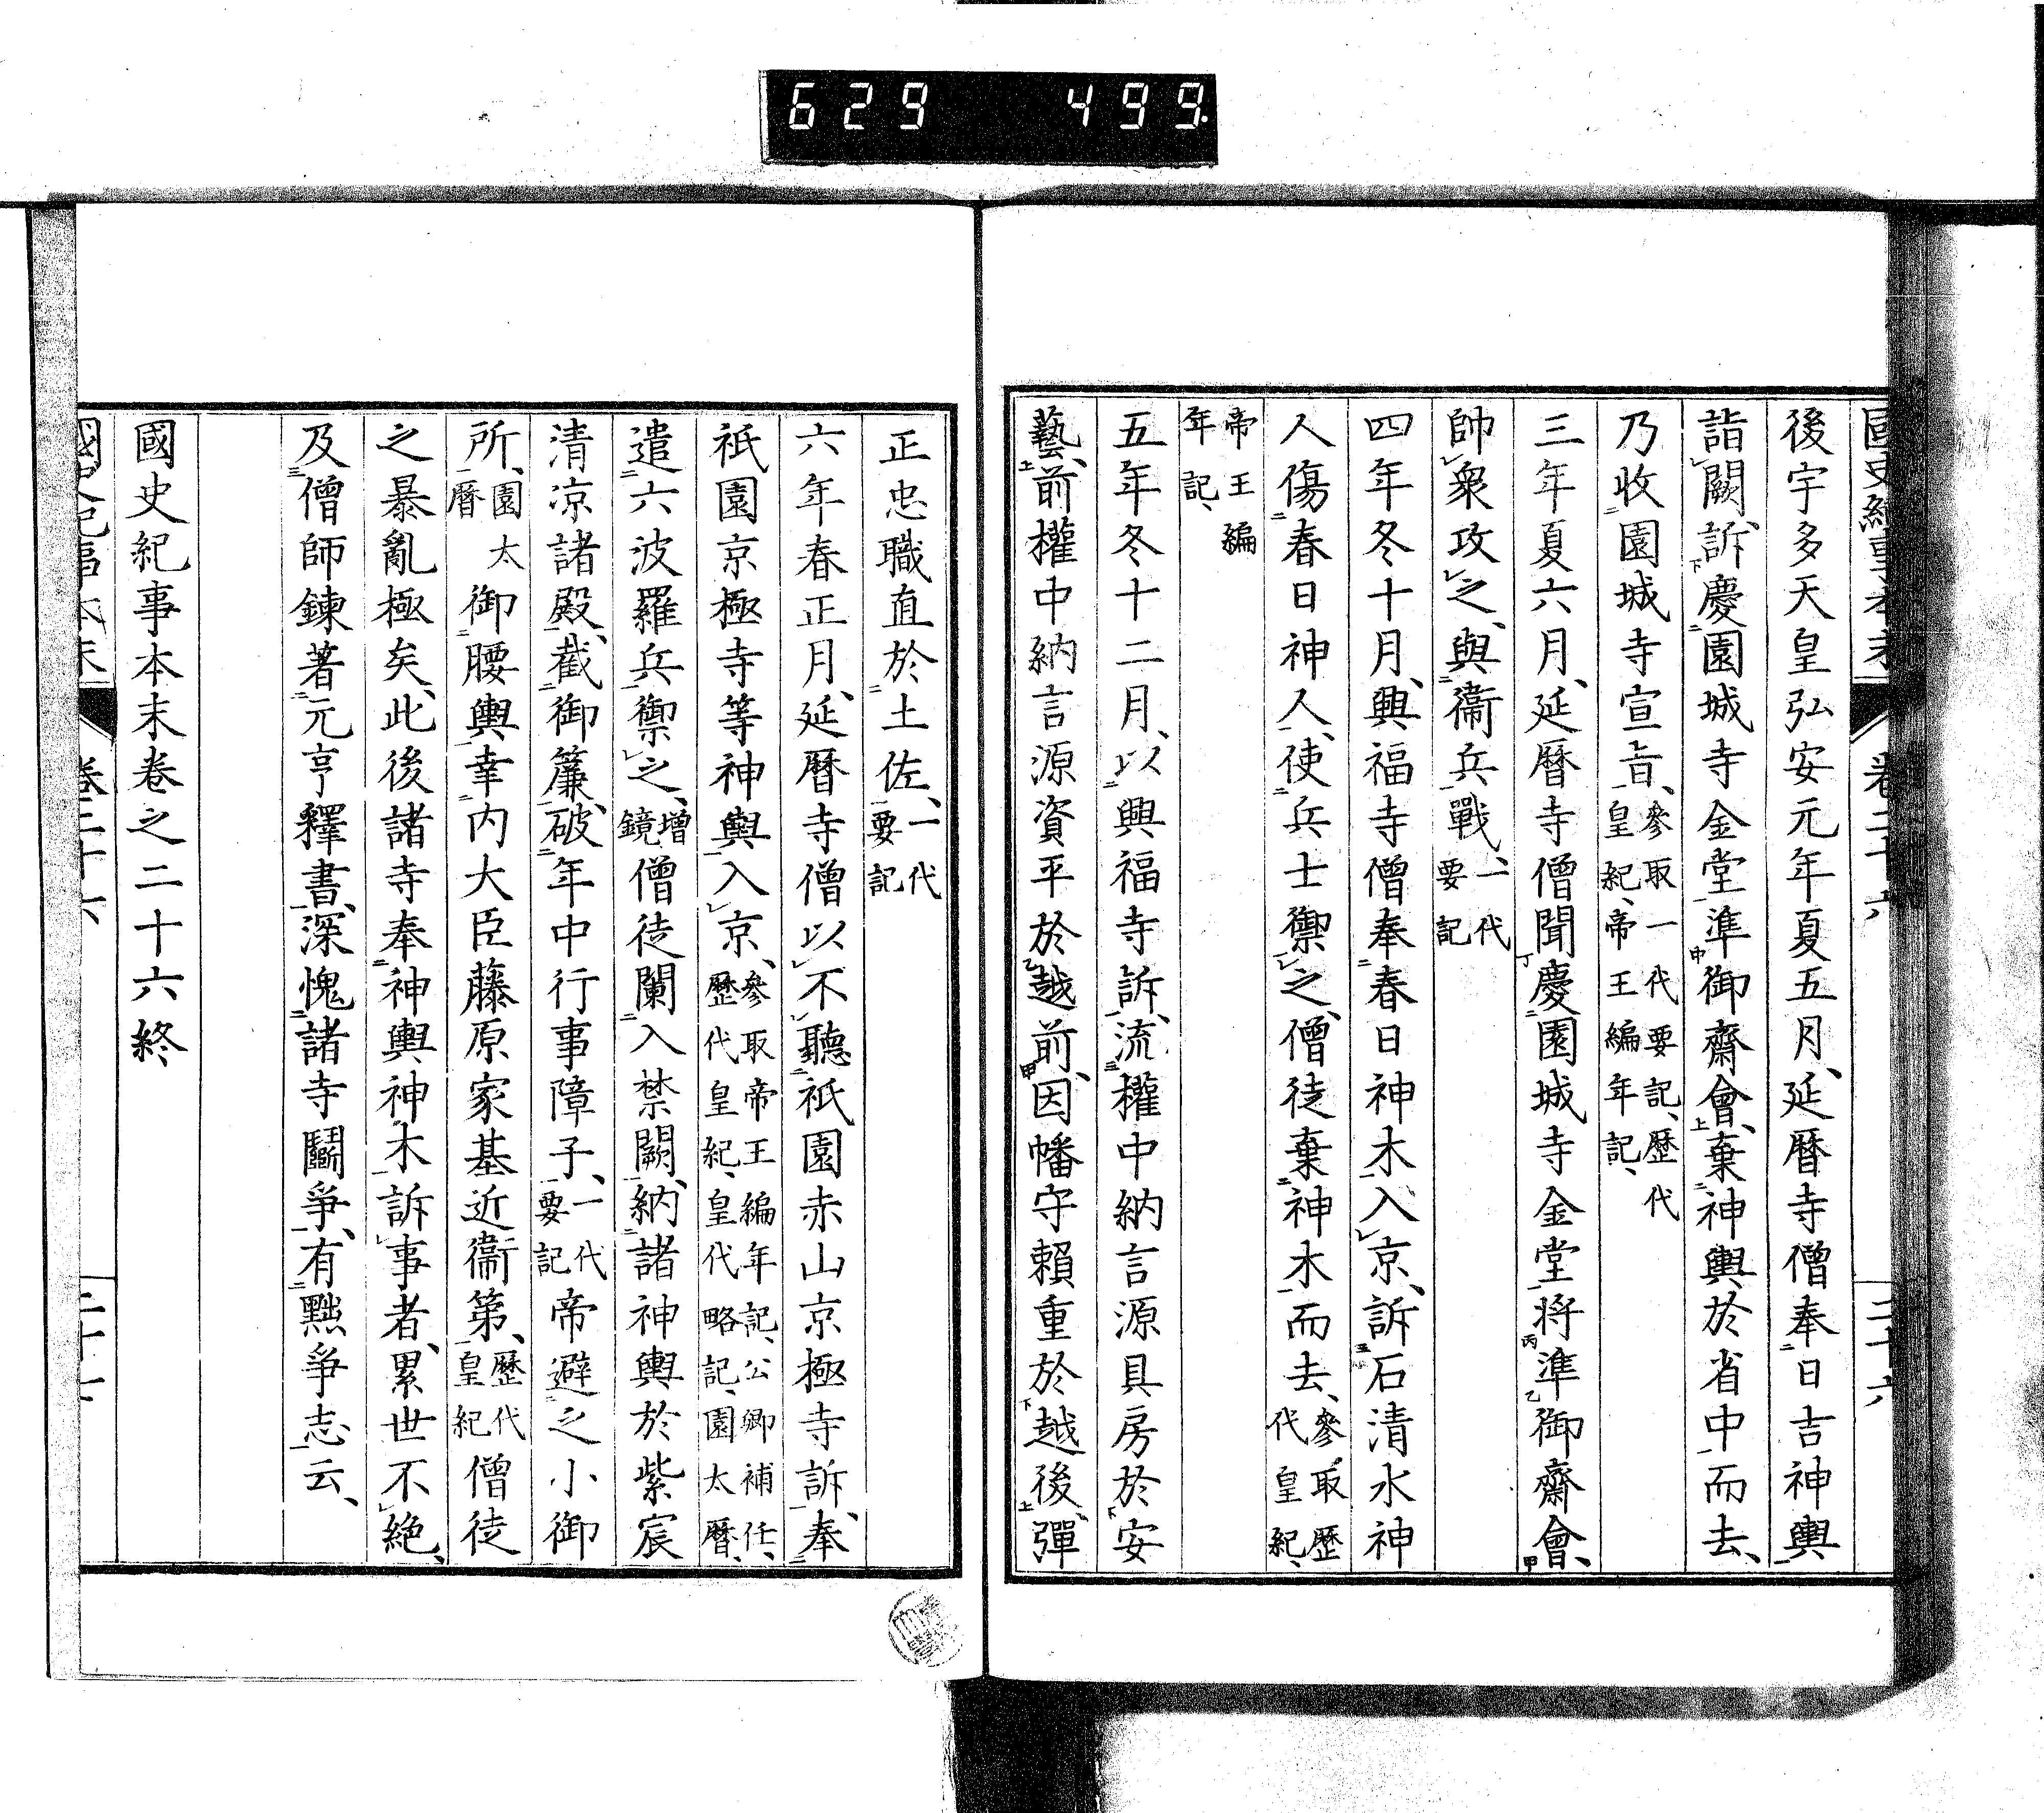 629 499
國史紀事本末 卷二十六 二十六
後宇多天皇弘安元年夏五月、延曆寺僧奉日吉神輿
詣闕、訴慶園城寺金堂準御齋會、棄神輿於省中而去、
乃收園城寺宣旨、參取一代要記、歷代皇紀、帝王編年記、
三年夏六月、延曆寺僧聞慶園城寺金堂將準御齋會、
帥衆攻之、與衞兵戰、一代要記
四年冬十月、興福寺僧奉春日神木入京、訴石清水神
人傷春日神人、使兵士禦之、僧徒棄神木而去、參取歷代皇紀、
帝王編年記、
五年冬十二月、以興福寺訴、流權中納言源具房於安
藝、前權中納言源資平於越前、因幡守賴重於越後、彈
正忠職直於土佐、一代要記
六年春正月、延曆寺僧以不聽祇園赤山京極寺訴、奉
祇園京極寺等神輿入京、參取帝王編年記、公卿補任、歷代皇紀、皇代略記、園太曆、
遣六波羅兵禦之、增鏡僧徒闌入禁闕、納諸神輿於紫宸
清凉諸殿、截御簾、破年中行事障子、一代要記帝避之小御
所、園太曆御腰輿幸內大臣藤原家基近衞第、歷代皇紀僧徒
之暴亂極矣、此後諸寺奉神輿神木訴事者、累世不絕、
及僧師鍊著元亨釋書、深愧諸寺鬭爭、有黜爭志云、
國史紀事本末卷之二十六終
國史紀事本末 卷二十六 二十七